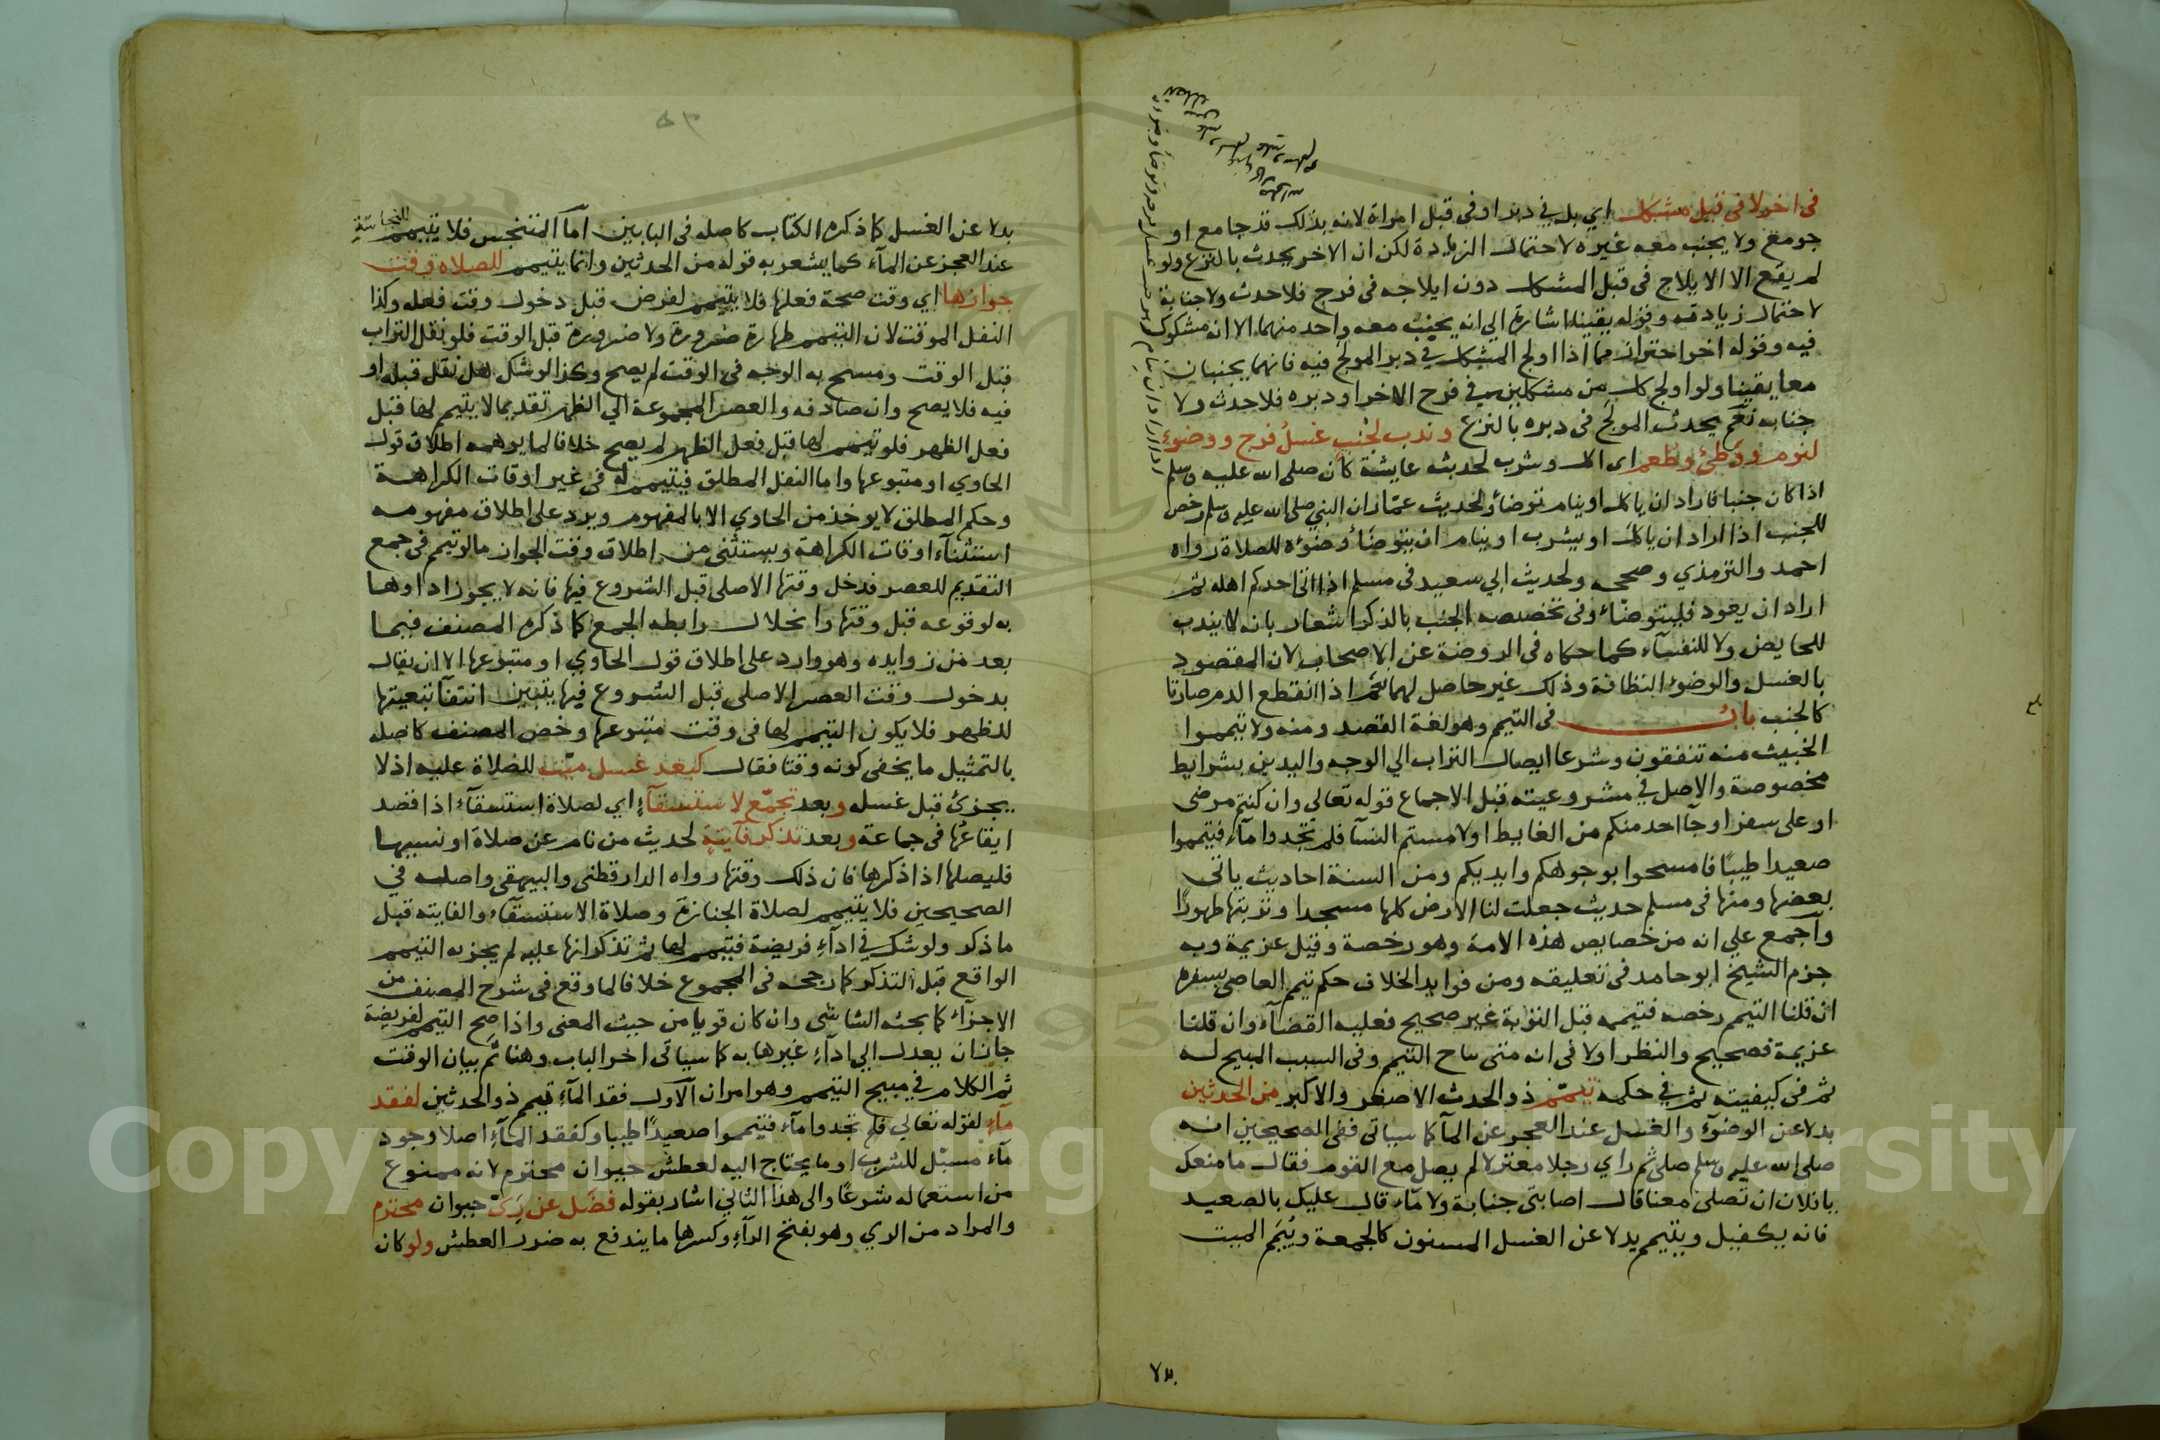 في اخر لا في قبل مشكل اي بل في دبر او في قبل امراة لانه بذلك قد جامع او
جومع ولا يجنب معه غيره لاحتمال الزيادة لكن ان الاخر يحدث بالنزع ولو
لم يقع الا الايلاج في قبل المشكل دون ايلاجه في فرج فلا حدث ولا جنابة
لاحتمال زيادته وقوله يقينا اشارة الي انه يجنب معه واحد منهما الا انه مشكوك
فيه وقوله اخر احتراز مما اذا اولج المشكل في دبر المولج فيه فانهما يجنبان
معا يقينا ولو اولج كل من مشكلين في فرج الاخر او دبره فلا حدث ولا
جنابه نعم يحدث المولج في دبره بالنزع وندب لجنب غسل فرج ووضوء
لنوم ووطئ وطعم اي اكل وشرب لحديث عايشة كان صلى الله عليه وسلم
اذا كان جنبا فاراد ان ياكل او ينام توضا ولحديث عمار ان النبي صلى الله عليه وسلم رخص
للجنب اذا اراد ان ياكل او يشرب او ينام ان يتوضا وضوءه للصلاة رواه
احمد والترمذي وصححه ولحديث ابي سعيد في مسلم اذا اتى احدكم اهله ثم
اراد ان يعود فليتوضاء وفي تخصيصه الجنب بالذكر اشعار بانه لا يندب
للحايض ولا للنفسآء كما حكاه في الروضة عن الاصحاب لان المقصود
بالغسل والوضوء النظافة وذلك غير حاصل لهما ثم اذا انقطع الدم صارتا
كالجنب باب في التيمم وهو لغة القصد ومنه ولا تيمموا
الخبيث منه تنفقون وشرعا ايصال التراب الي الوجه واليدين بشرايط
مخصوصة والاصل في مشروعيته قبل الاجماع قوله تعالى وان كنتم مرضى
او على سفر او جآ احد منكم من الغايط او لامستم النسآ فلم تجدوا مآء فتيمموا
صعيدا طيبًا فامسحوا بوجوهكم وايديكم ومن السنة احاديث ياتي
بعضها ومنها في مسلم حديث جعلت لنا الارض كلها مسجدا وتربتها طهورًا
وأجمع علي انه من خصايص هذه الامة وهو رخصة وقيل عزيمة وبه
جزم الشيخ ابو حامد في تعليقه ومن فوايد الخلاف حكم تيمم العاصي بسفره
ان قلنا التيمم رخصه فتيممه قبل التوبة غير صحيح فعليه القضآء وان قلنا
عزيمة فصحيح والنظر اولا في انه متى يباح التيمم وفي السبب المبيح له
ثم في كيفيته ثم في حكمه تيمم ذو الحدث الاصغر والاكبر من الحدثين
بدلا عن الوضوء والغسل عند العجز عن المآ كما سياتي ففي الصحيحين انه
صلى الله عليه وسلم صلى ثم راي رجلا معتزلا لم يصل مع القوم فقال ما منعك
يا فلان ان تصلي معنا قال اصابتني جنابة ولا مآء قال عليك بالصعيد
فانه يكفيك ويتيمم بدلا عن الغسل المسنون كالجمعة وييمم الميت
٧٣
بدلا عن الغسل كما ذكره الكتاب كاصله في البابين اما المتنجس فلا يتيمم للنجاسة
عند العجز عن المآء كما يشعر به قوله من الحدثين وانما يتيمم للصلاه وقت
جوازها اي وقت صحة فعلها فلا يتيمم لفرض قبل دخول وقت فعله وكذا
النفل الموقت لان التيمم طهارة ضرورة ولا ضرورة قبل الوقت فلو نقل التراب
قبل الوقت ومسح به الوجه في الوقت لم يصح وكذا لو شك هل نقل قبله او
فيه فلا يصح وان صادفه والعصر المجموعة الي الظهر تقديما لا يتيمم لها قبل
فعل الظهر فلو تيمم لها قبل فعل الظهر لم يصح خلافا لما يوهمه اطلاق قول
الحاوي او متبوعها واما النفل المطلق فيتيمم له في غير اوقات الكراهة
وحكم المطلق لا يوخذ من الحاوي الا بالمفهوم ويرد على اطلاق مفهومه
استثنآء اوقات الكراهة ويستثنى من اطلاق وقت الجواز ما لو تيمم في جمع
التقديم للعصر فدخل وقتها الاصلي قبل الشروع فيها فانه لا يجوز اداوها
به لوقوعه قبل وقتها وانحلال رابطه الجمع كما ذكره المصنف فيما
بعد من زوايده وهو وارد على اطلاق قول الحاوي او متبوعها الا ان يقال
بدخول وقت العصر الاصلي قبل الشروع فيها يتبين انتفآ تبعيتها
للظهر فلا يكون التيمم لها في وقت متبوعها وخص المصنف كاصله
بالتمثيل ما يخفى كونه وقتا فقال كبعد غسل ميت للصلاة عليه اذ لا
يجزئ قبل غسله وبعد تجمع لاستسقآء اي لصلاة استسقآء اذا قصد
ايقاعها في جماعة وبعد تذكر فآيتة لحديث من نام عن صلاة او نسيها
فليصلها اذا ذكرها فان ذلك وقتها رواه الدارقطني والبيهقي واصله في
الصحيحين فلا يتيمم لصلاة الجنازة وصلاة الاستسقآء والفايته قبل
ما ذكر ولو شك في ادآء فريضة فتيمم لها ثم تذكر انها عليه لم يجز به التيمم
الواقع قبل التذكر كما رجحه في المجموع خلافا لما وقع في شرح المصنف من
الاجزآء كما بحثه الشاشي وان كان قويا من حيث المعنى واذا صح التيمم لفريضة
جاز ان يعدل الي ادآء غيرها به كما سياتي اخر الباب وهنا تم بيان الوقت
ثم الكلام في مبيح التيمم وهو امران الآول فقد المآء تيمم ذو الحدثين لفقد
مآء لقوله تعالى فلم تجدوا مآء فتيمموا صعيدًا طيبا وكفقد المآء اصلا وجود
مآء مسبّل للشرب او ما يحتاج اليه لعطش حيوان محترم لانه ممنوع
من استعماله شرعًا والى هذا الثاني اشار بقوله فضل عن ريّ حيوان محترم
والمراد من الري وهو بفتح الرآء وكسرها ما يندفع به ضرر العطش ولو كان
Copyright © King Saud University